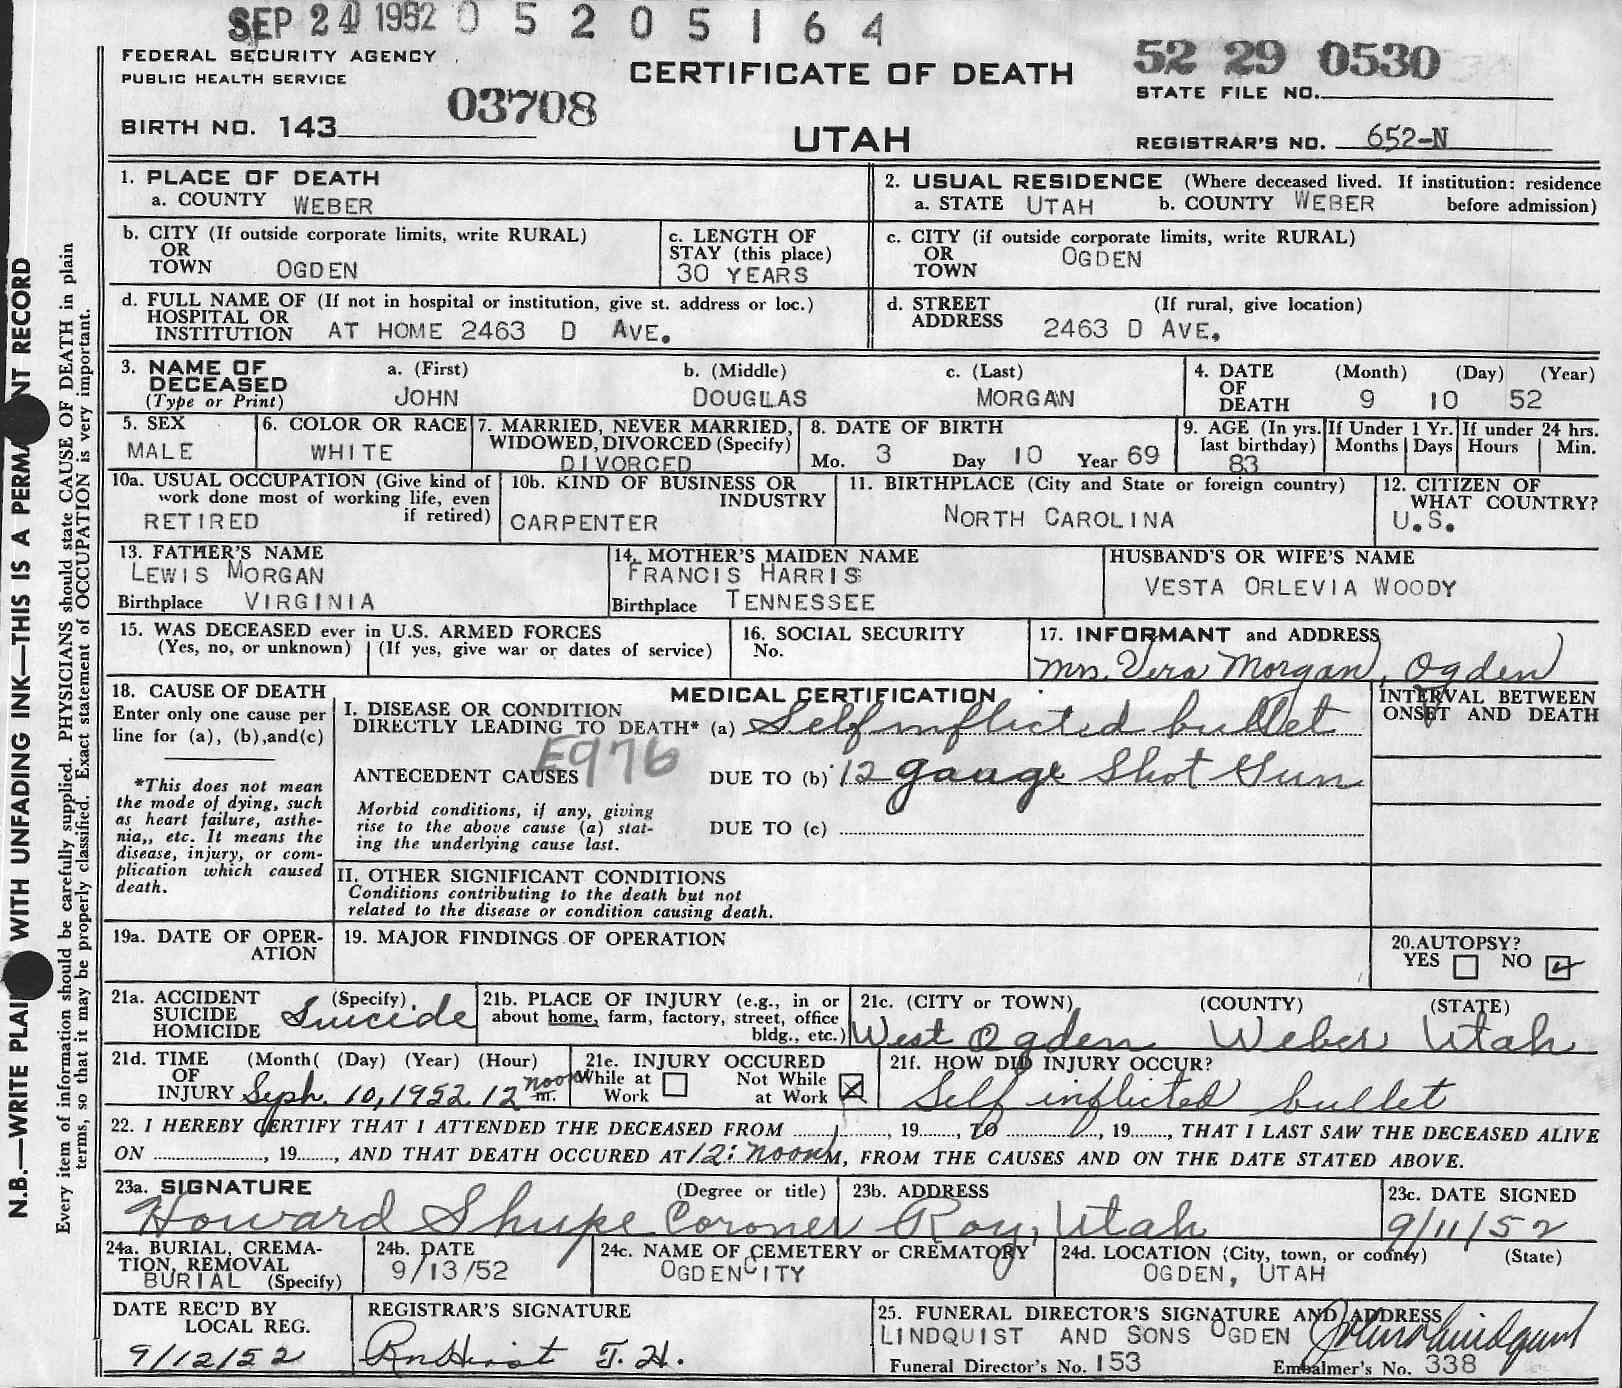 SEP 24 1952 0 5 2 0 5 1 6 4
FEDERAL SECURITY AGENCY
PUBLIC HEALTH SERVICE
CERTIFICATE OF DEATH
52 29 0530
STATE FILE NO.
03708
BIRTH NO. 143
UTAH
REGISTRAR'S NO. 652-N
1. PLACE OF DEATH
a. COUNTY WEBER
2. USUAL RESIDENCE (Where deceased lived. If institution: residence
a. STATE UTAH b. COUNTY WEBER before admission)
b. CITY (If outside corporate limits, write RURAL)
OR
TOWN OGDEN
c. LENGTH OF
STAY (this place)
30 YEARS
c. CITY (if outside corporate limits, write RURAL)
OR
TOWN OGDEN
d. FULL NAME OF (If not in hospital or institution, give st. address or loc.)
HOSPITAL OR
INSTITUTION AT HOME 2463 D AVE.
d. STREET (If rural, give location)
ADDRESS 2463 D AVE.
3. NAME OF
DECEASED
(Type or Print)
a. (First)
JOHN
b. (Middle)
DOUGLAS
c. (Last)
MORGAN
4. DATE
OF
DEATH
(Month) (Day) (Year)
9 10 52
5. SEX
MALE
6. COLOR OR RACE
WHITE
7. MARRIED, NEVER MARRIED,
WIDOWED, DIVORCED (Specify)
DIVORCED
8. DATE OF BIRTH
Mo. 3 Day 10 Year 69
9. AGE (In yrs.
last birthday)
83
If Under 1 Yr.
Months Days
If under 24 hrs.
Hours Min.
10a. USUAL OCCUPATION (Give kind of
work done most of working life, even
if retired)
RETIRED
10b. KIND OF BUSINESS OR
INDUSTRY
CARPENTER
11. BIRTHPLACE (City and State or foreign country)
NORTH CAROLINA
12. CITIZEN OF
WHAT COUNTRY?
U.S.
13. FATHER'S NAME
LEWIS MORGAN
Birthplace VIRGINIA
14. MOTHER'S MAIDEN NAME
FRANCIS HARRIS
Birthplace TENNESSEE
HUSBAND'S OR WIFE'S NAME
VESTA ORLEVIA WOODY
15. WAS DECEASED ever in U.S. ARMED FORCES
(Yes, no, or unknown) (If yes, give war or dates of service)
16. SOCIAL SECURITY
No.
17. INFORMANT and ADDRESS
Mrs. Vera Morgan, Ogden
18. CAUSE OF DEATH
Enter only one cause per
line for (a), (b),and(c)
*This does not mean
the mode of dying, such
as heart failure, asthe-
nia,, etc. It means the
disease, injury, or com-
plication which caused
death.
MEDICAL CERTIFICATION
I. DISEASE OR CONDITION
DIRECTLY LEADING TO DEATH* (a) Self inflicted bullet
E976
ANTECEDENT CAUSES DUE TO (b) 12 gauge Shot Gun
Morbid conditions, if any, giving
rise to the above cause (a) stat-
ing the underlying cause last.
DUE TO (c)
II. OTHER SIGNIFICANT CONDITIONS
Conditions contributing to the death but not
related to the disease or condition causing death.
INTERVAL BETWEEN
ONSET AND DEATH
19a. DATE OF OPER-
ATION
19. MAJOR FINDINGS OF OPERATION
20.AUTOPSY?
YES NO
21a. ACCIDENT (Specify)
SUICIDE
HOMICIDE
Suicide
21b. PLACE OF INJURY (e.g., in or
about home, farm, factory, street, office
bldg., etc.)
21c. (CITY or TOWN) (COUNTY) (STATE)
West Ogden Weber Utah
21d. TIME (Month( (Day) (Year) (Hour)
OF
INJURY Seph. 10, 1952 12 noon m.
21e. INJURY OCCURED
While at Work Not While at Work
21f. HOW DID INJURY OCCUR?
Self inflicted bullet
22. I HEREBY CERTIFY THAT I ATTENDED THE DECEASED FROM , 19 , TO , 19 , THAT I LAST SAW THE DECEASED ALIVE
ON , 19 , AND THAT DEATH OCCURED AT 12: noon M, FROM THE CAUSES AND ON THE DATE STATED ABOVE.
23a. SIGNATURE (Degree or title)
Howard Shupe Coroner
23b. ADDRESS
Roy, Utah
23c. DATE SIGNED
9/11/52
24a. BURIAL, CREMA-
TION, REMOVAL
BURIAL (Specify)
24b. DATE
9/13/52
24c. NAME OF CEMETERY or CREMATORY
OGDENCITY
24d. LOCATION (City, town, or county) (State)
OGDEN, UTAH
DATE REC'D BY
LOCAL REG.
9/12/52
REGISTRAR'S SIGNATURE
25. FUNERAL DIRECTOR'S SIGNATURE AND ADDRESS
LINDQUIST AND SONS OGDEN
Funeral Director's No. 153 Embalmer's No. 338
N.B.—WRITE PLAI WITH UNFADING INK—THIS IS A PERMA NT RECORD
Every item of information should be carefully supplied. PHYSICIANS should state CAUSE OF DEATH in plain
terms, so that it may be properly classified. Exact statement of OCCUPATION is very important.